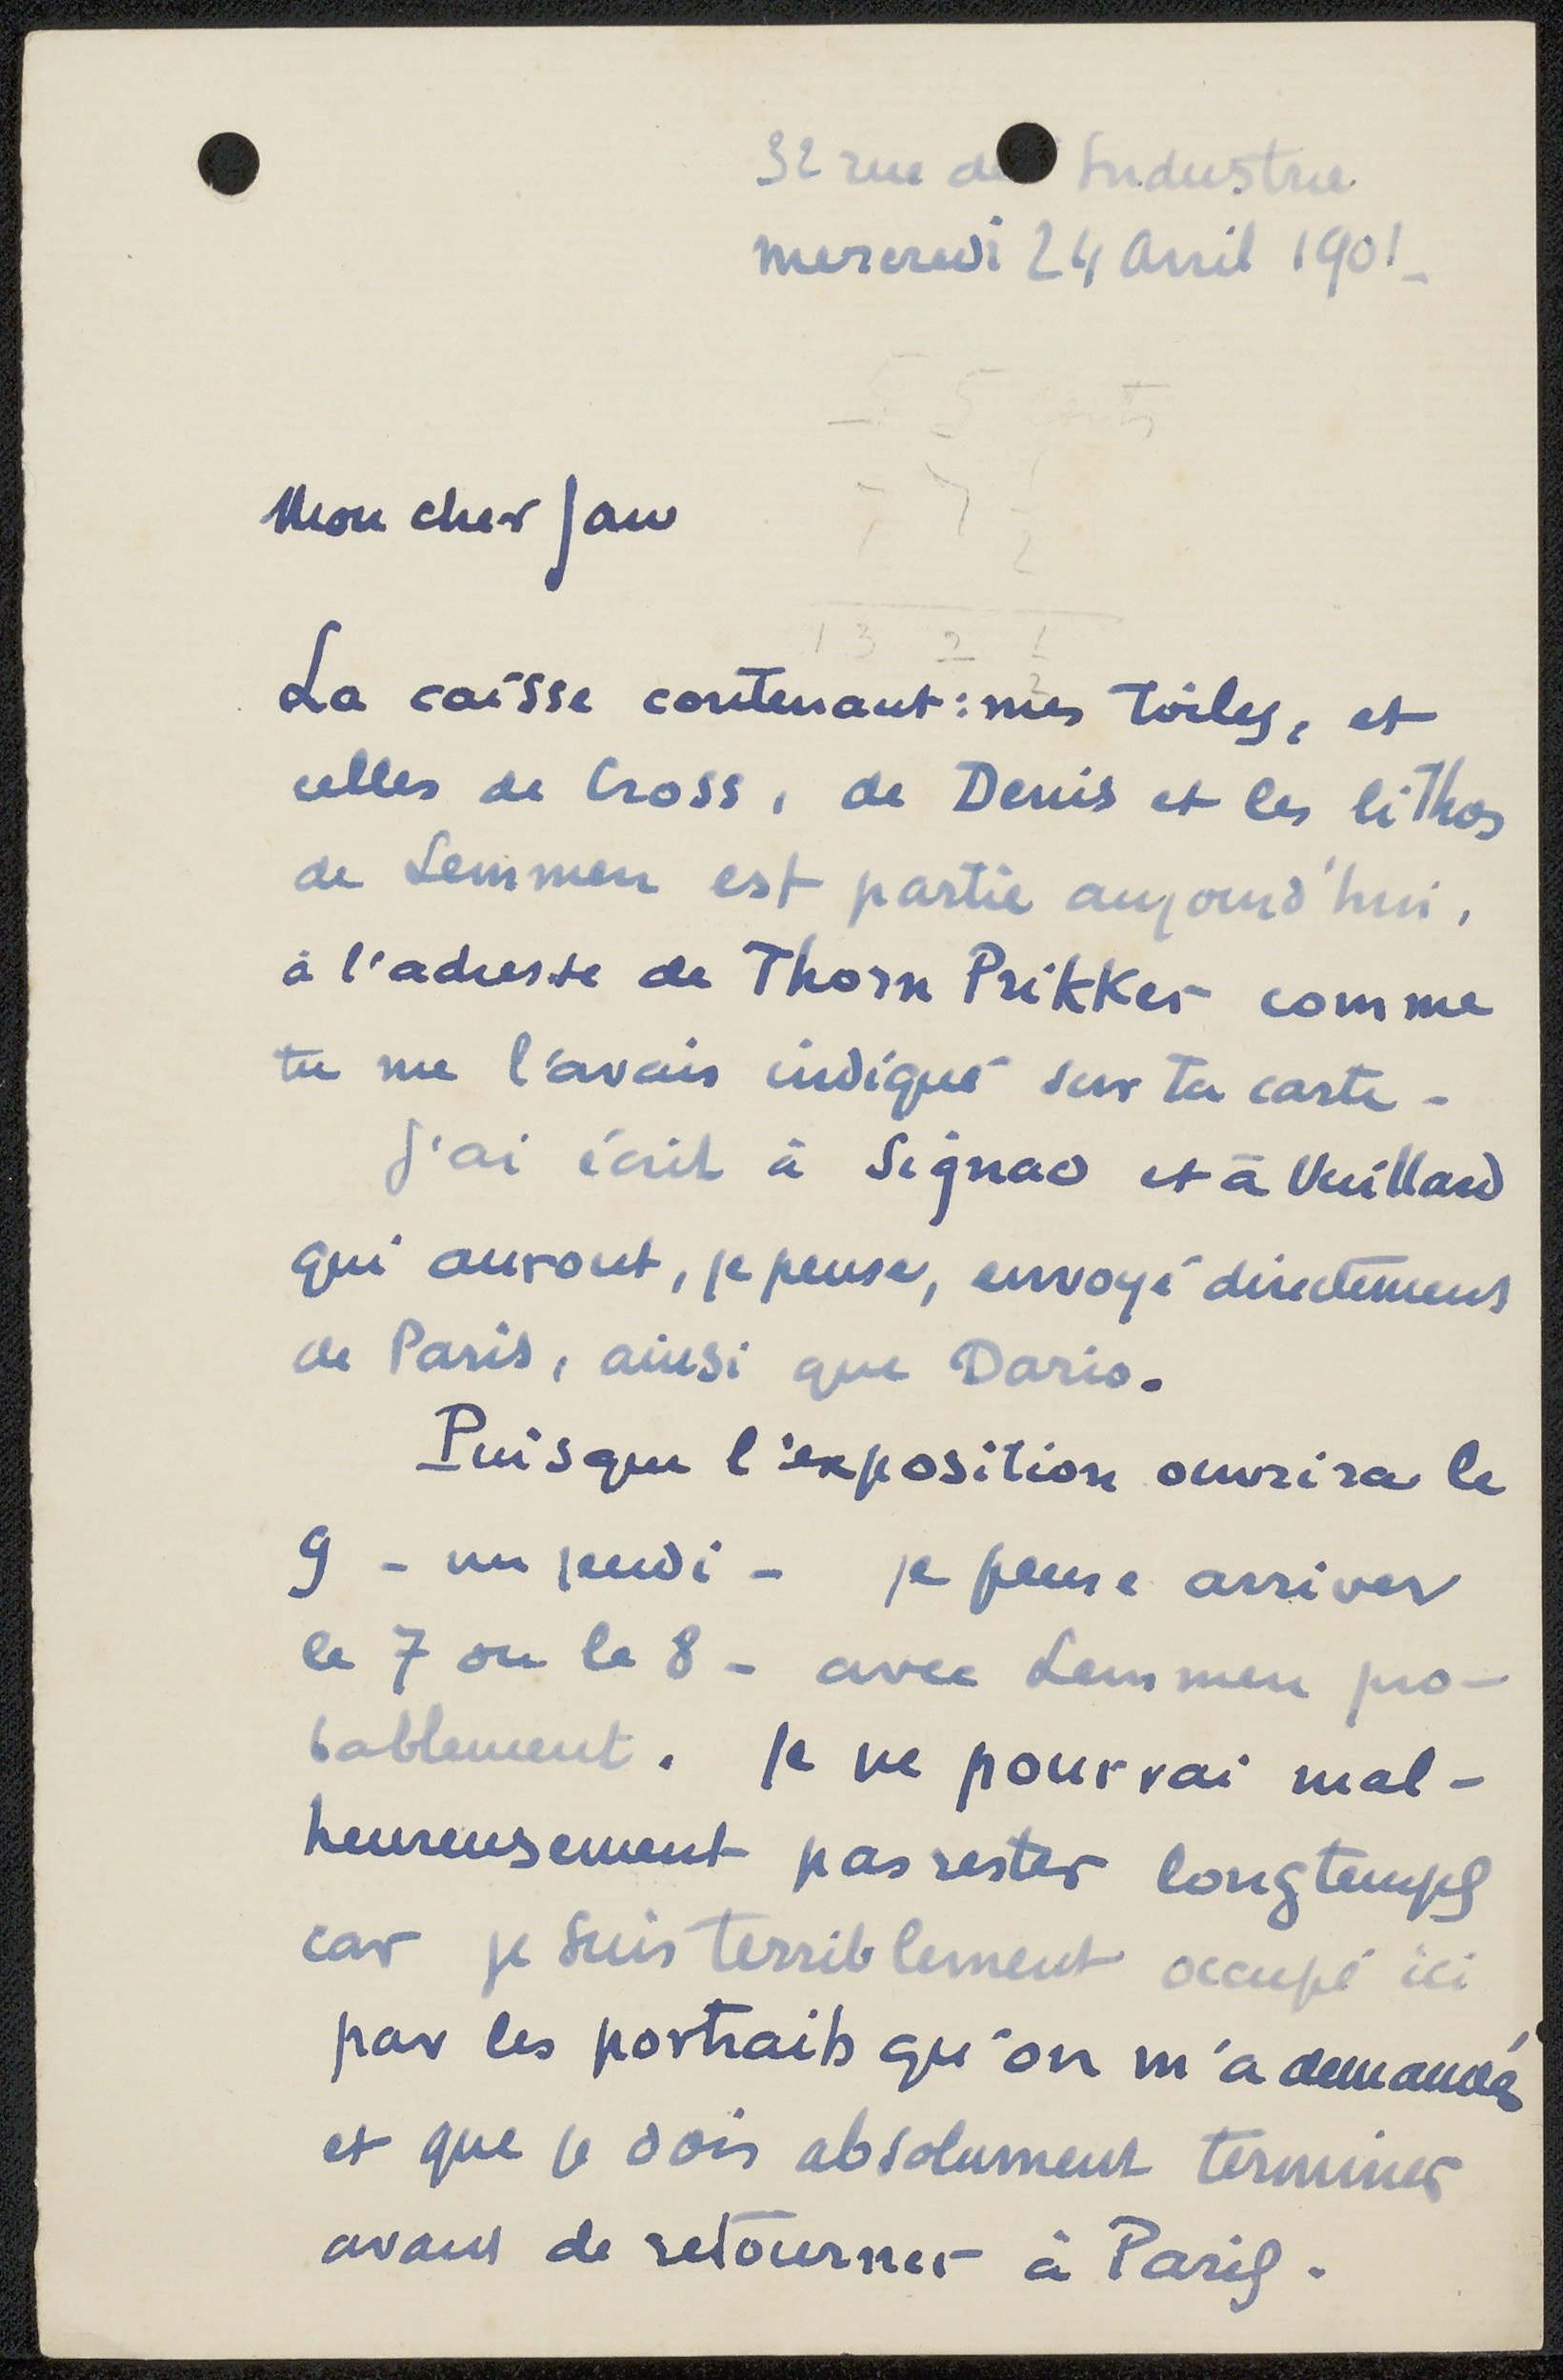 32 rue de l'Industrie
mercredi 24 Avril 1901 -
5 5 cents
7 7 1/2
13 2 1/2
Mon cher Jan
La caisse contenant: mes toiles, et
celles de Cross, de Denis et les lithos
de Lemmen est partie aujourd'hui,
à l'adresse de Thorn Prikker comme
tu me l'avais indiqué sur ta carte -
J'ai écrit à Signac et à Vuillard
qui auront, je pense, envoyé directement
de Paris, ainsi que Dario.
Puisque l'exposition ouvrira le
9 - un jeudi - je pense arriver
le 7 ou le 8 - avec Lemmen pro-
bablement. Je ne pourrai mal-
heureusement pas rester longtemps
car je suis terriblement occupé ici
par les portraits qu'on m'a demandés
et que je dois absolument terminer
avant de retourner à Paris.